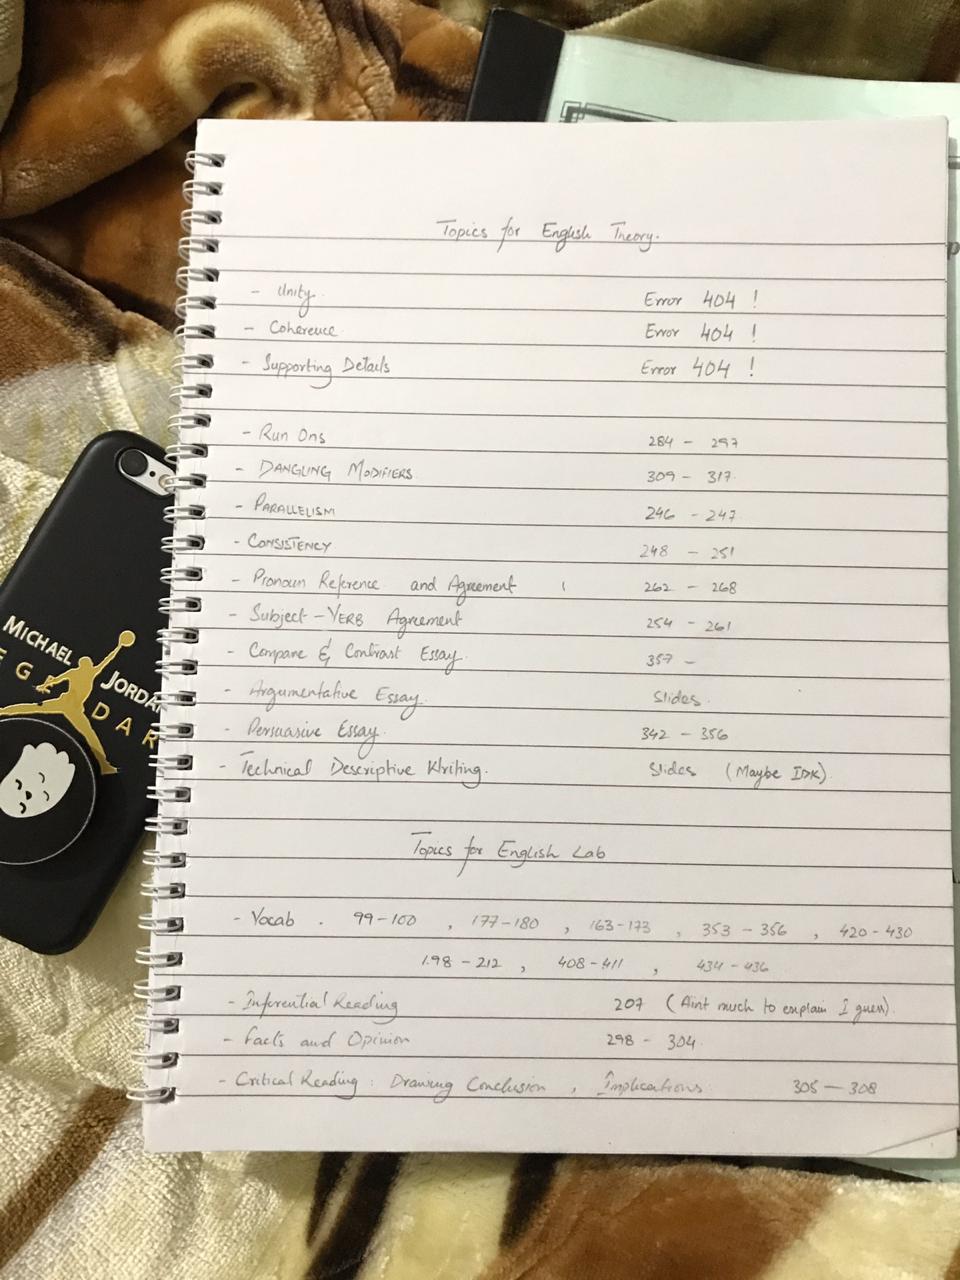 Topics for English Theory.
- Unity. Error 404 !
- Coherence. Error 404 !
- Supporting Details Error 404 !
- Run Ons 284 - 297
- DANGLING MODIFIERS. 309 - 317.
- PARALLELISM 246 - 247
- CONSISTENCY 248 - 251
- Pronoun Reference and Agreement 262 - 268
- Subject - VERB Agreement 254 - 261
- Compare & Contrast Essay. 357 -
- Argumentative Essay. Slides.
- Persuasive Essay. 342 - 356
- Technical Descriptive Writing. Slides (Maybe IDK).
Topics for English Lab
- Vocab . 99-100 , 177-180 , 163-173 , 353 - 356 , 420-430
198 - 212 , 408-411 , 434-436
- Inferential Reading 207 (Aint much to explain I guess).
- Facts and Opinion 298 - 304.
- Critical Reading : Drawing Conclusion , Implications. 305 - 308
MICHAEL
JORDAN